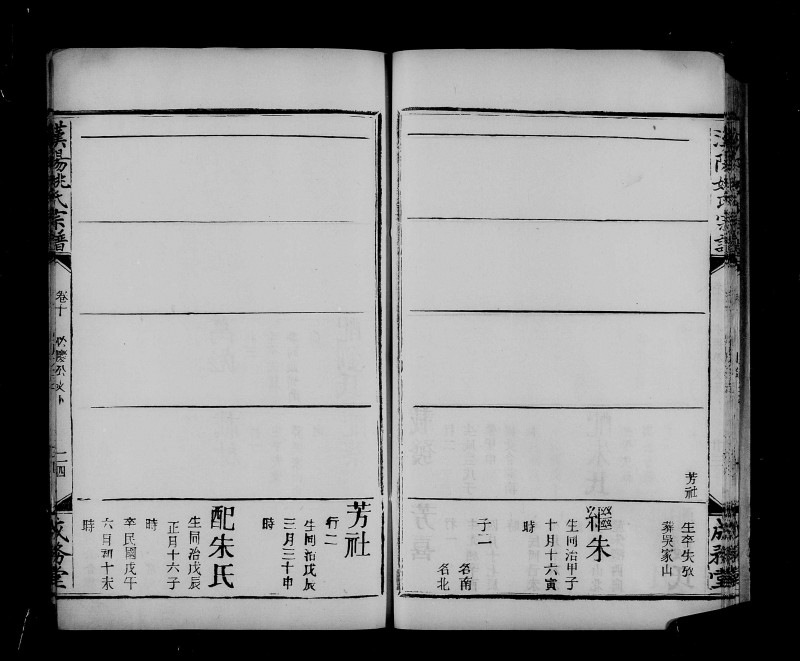 漢陽姚氏宗譜
芳社
生卒失攷
葬吳家山
繼朱
生同治甲子
十月十六寅
時
子二
名南
名北
成務堂
芳社
行二
生同治戊辰
三月三十申
時
配朱氏
生同治戊辰
正月十六子
時
卒民國戊午
六月初十未
時
漢陽姚氏宗譜
卷十
二四
成務堂